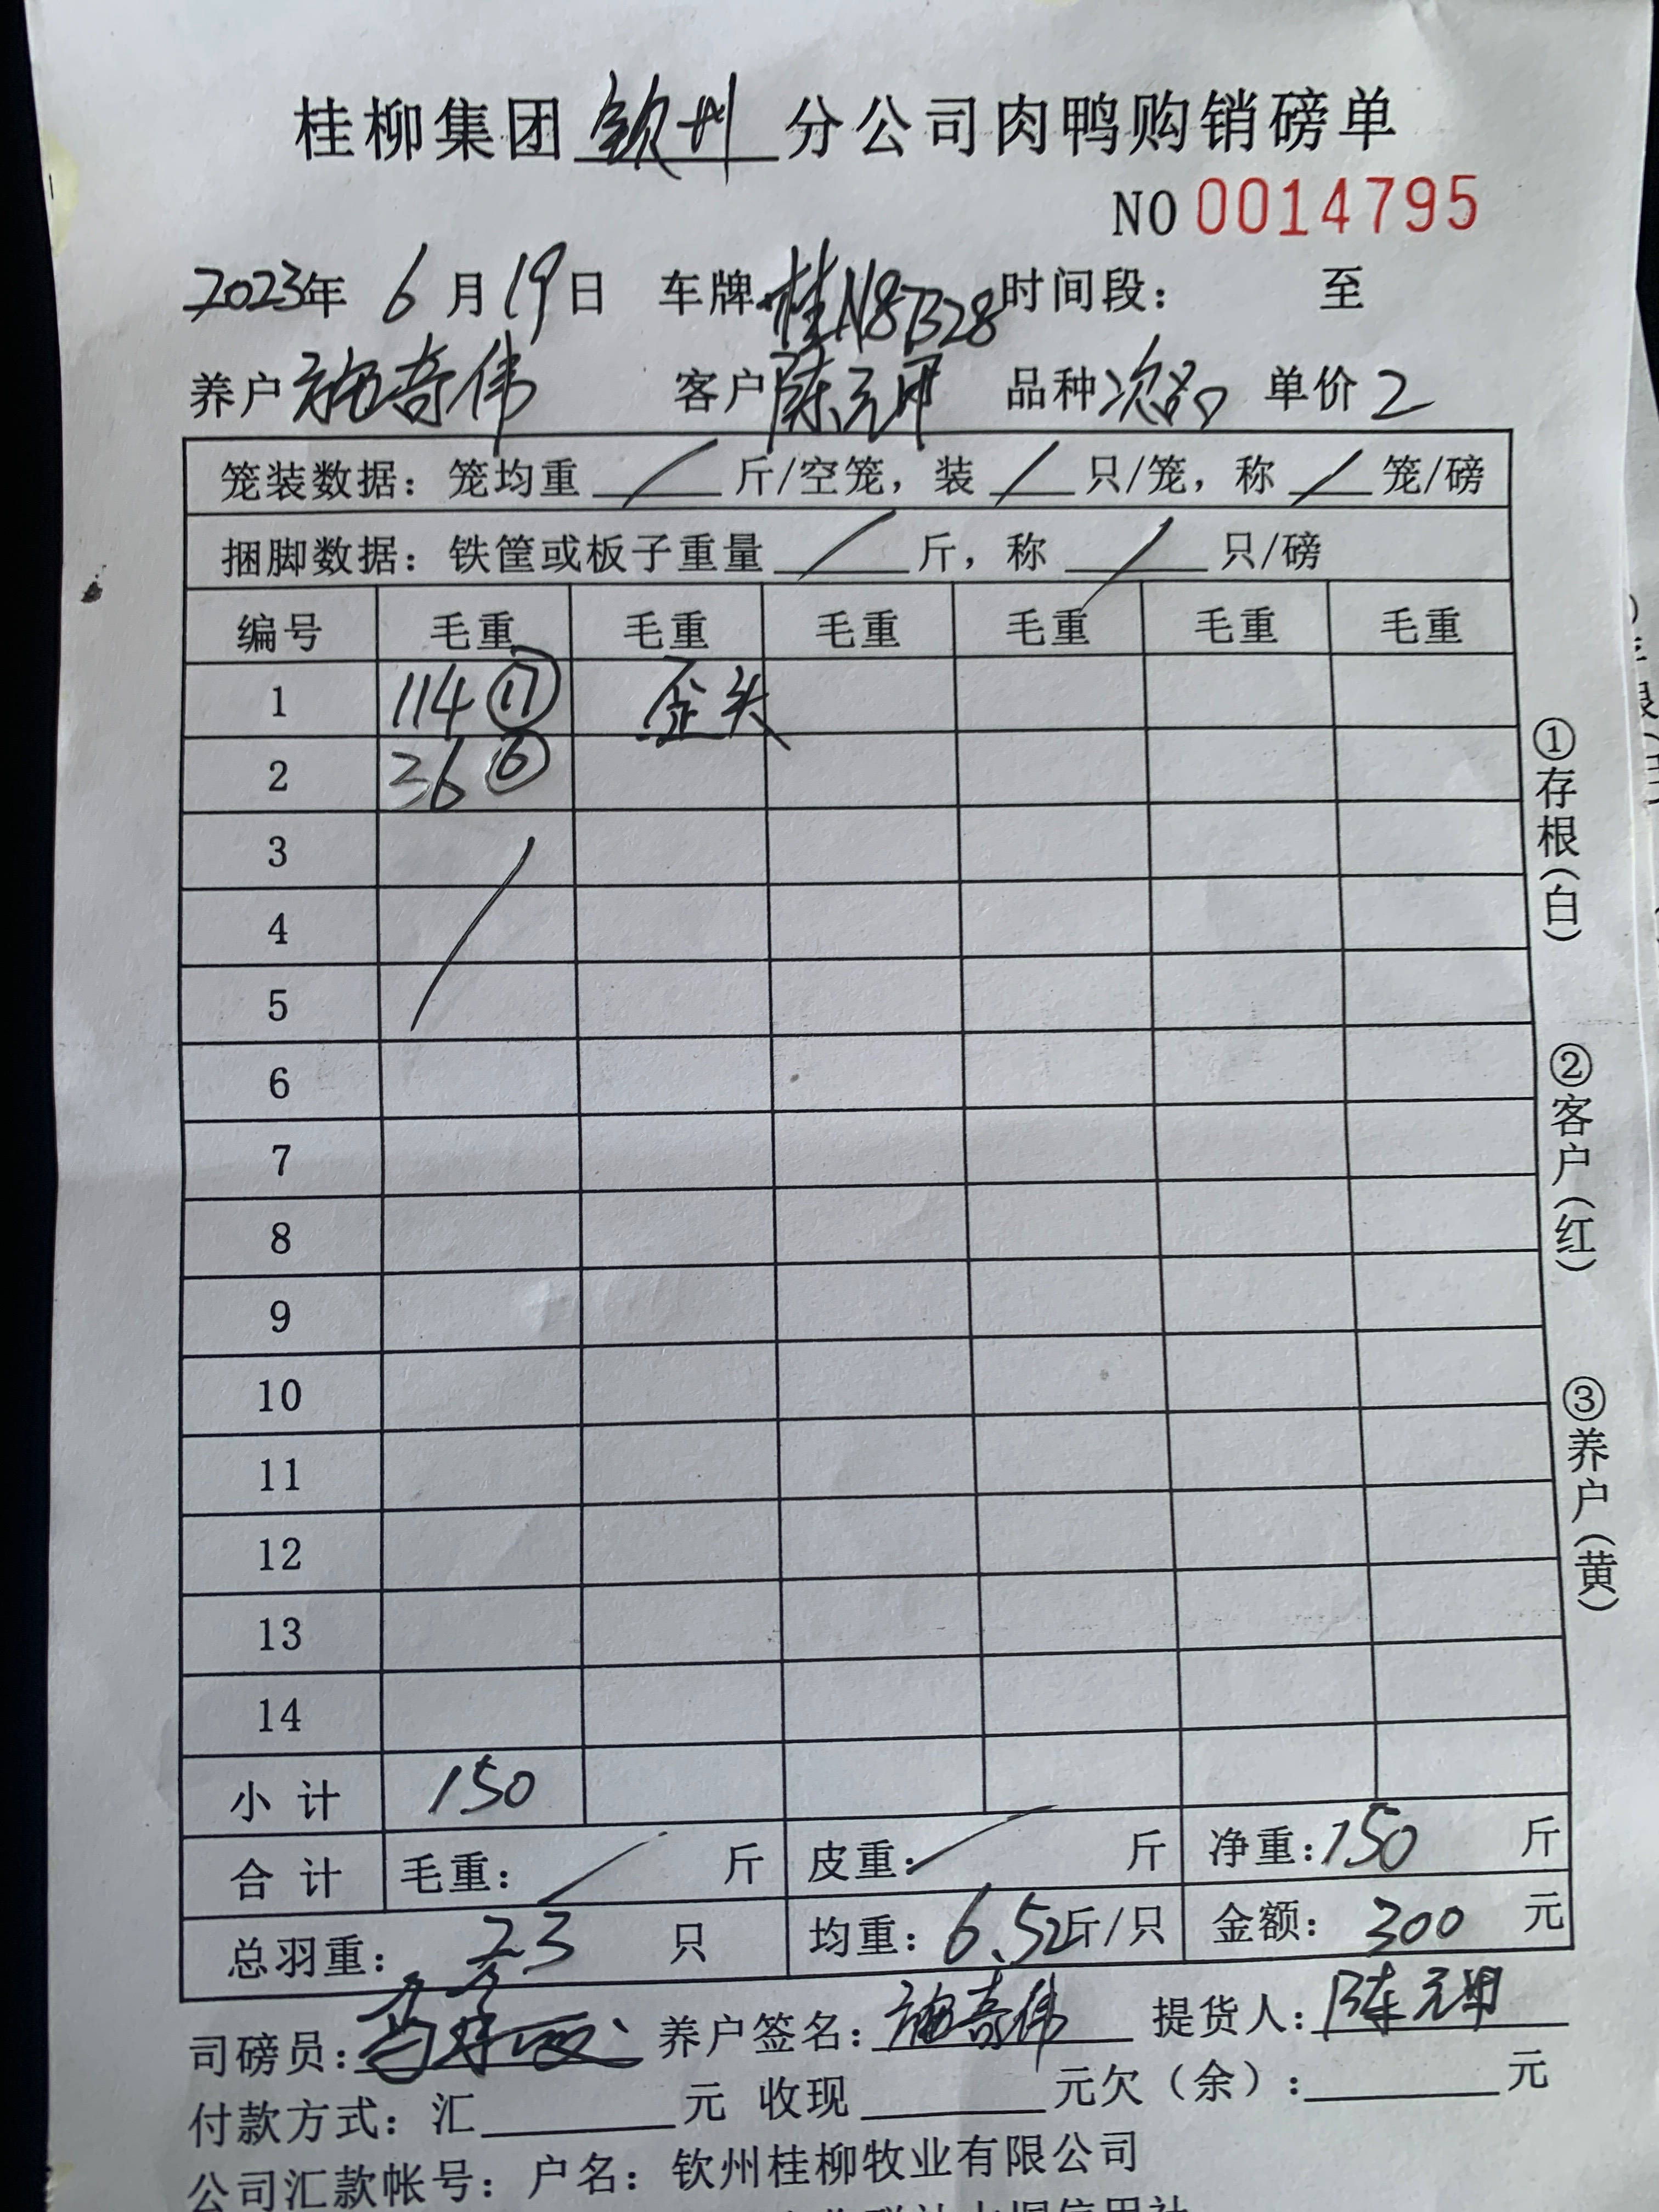 桂柳集团 钦州 分公司肉鸭购销磅单
NO 0014795
2023年 6月19日 车牌 桂N8B28 时间段： 至
养户 施奇伟 客户 陈元 品种 次 单价 2
笼装数据：笼均重 / 斤/空笼，装 / 只/笼，称 / 笼/磅
捆脚数据：铁筐或板子重量 / 斤，称 / 只/磅
编号 毛重 毛重 毛重 毛重 毛重 毛重
1 114 ⑰ 歪头
2 36 ⑥
3
4
5
6
7
8
9
10
11
12
13
14
小计 150
合计 毛重： / 斤 皮重： / 斤 净重：150 斤
总羽重： 23 只 均重：6.52斤/只 金额： 300 元
司磅员： 养户签名：施奇伟 提货人：陈元
付款方式：汇 元 收现 元欠（余）： 元
公司汇款帐号：户名：钦州桂柳牧业有限公司
①存根（白）
②客户（红）
③养户（黄）